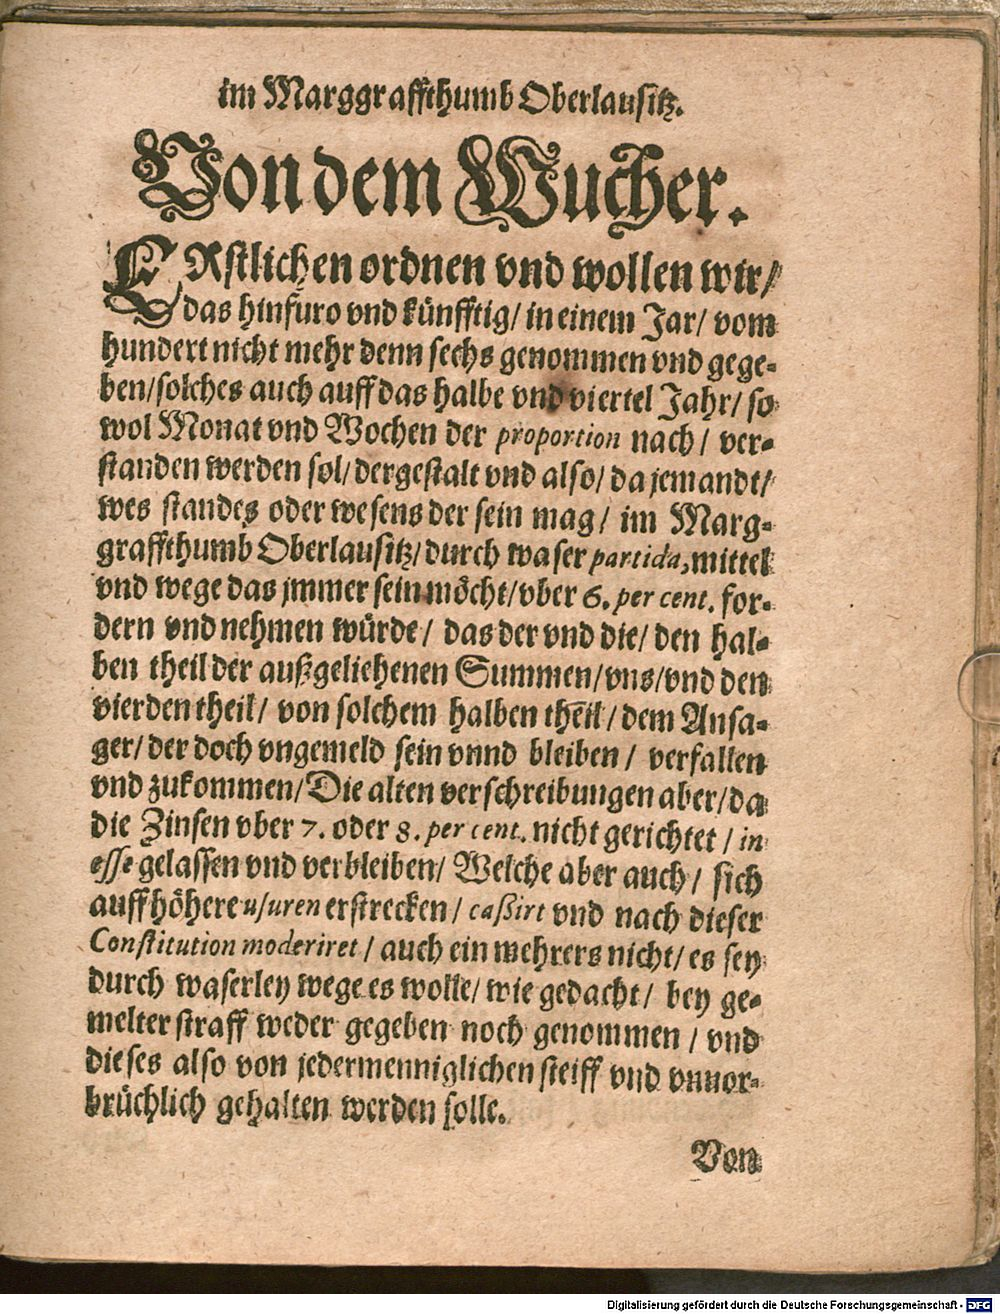 im Marggraffthumb Oberlausitz.
Von dem Wucher.
ERstlichen ordnen vnd wollen wir/
das hinfüro vnd künfftig/ in einem Jar/ vom
hundert nicht mehr denn sechs genommen vnd gege-
ben/solches auch auff das halbe vnd viertel Jahr/ so
wol Monat vnd Wochen der proportion nach/ ver-
standen werden sol/ dergestalt vnd also/ da jemandt/
wes standes oder wesens der sein mag/ im Marg-
graffthumb Oberlausitz/ durch waser partida, mittel
vnd wege das jmmer sein möcht/ vber 6. per cent. for-
dern vnd nehmen würde/ das der vnd die/ den hal-
ben theil der außgeliehenen Summen/ vns/ vnd den
vierden theil/ von solchem halben theil/ dem Ansa-
ger/ der doch vngemeld sein vnnd bleiben/ verfallen
vnd zukommen/ Die alten verschreibungen aber/ da
die Zinsen vber 7. oder 8. per cent. nicht gerichtet/ in
esse gelassen vnd verbleiben/ Welche aber auch/ sich
auff höhere usuren erstrecken/ caßirt vnd nach dieser
Constitution moderiret/ auch ein mehrers nicht/ es sey
durch waserley wege es wolle/ wie gedacht/ bey ge-
melter straff weder gegeben noch genommen/ vnd
dieses also von jedermenniglichen steiff vnd vnuor-
brüchlich gehalten werden solle.
Von
Digitalisierung gefördert durch die Deutsche Forschungsgemeinschaft - DFG